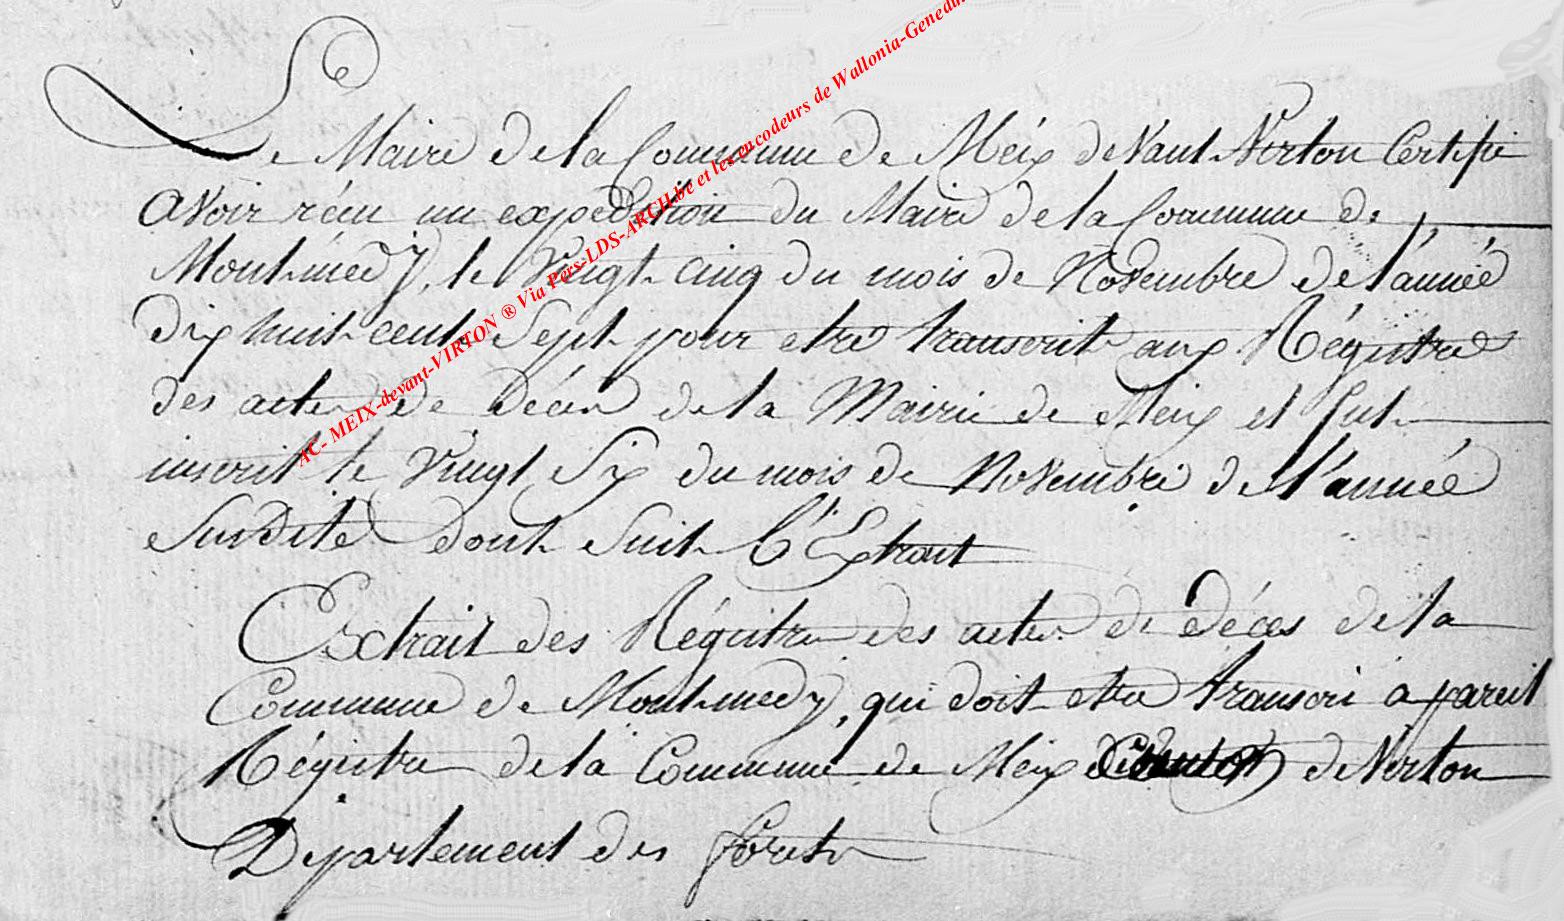 Le Maire de la Commune de Méix devant Virton Certifie
avoir réçu un expedition du Maire de la Commune de
Montmedÿ, le vingt cinq du mois de Novembre de l'année
dix huit cent Sept pour etre transcrit aux Régistres
des actes de décès de la Mairie de Meix et fut
inscrit le vingt Six du mois de Novembre de l'année
Susdite dont Suit L'Extrait
Extrait des Régistre des actes de décès de la
Commune de Montmedÿ, qui doit etre transcri a pareil
Régistre de la Commune de Meix de Virton
Département des forets
AC- MEIX-devant-VIRTON ® Via Pers-LDS-ARCH.be et les encodeurs de Wallonia-Genealo